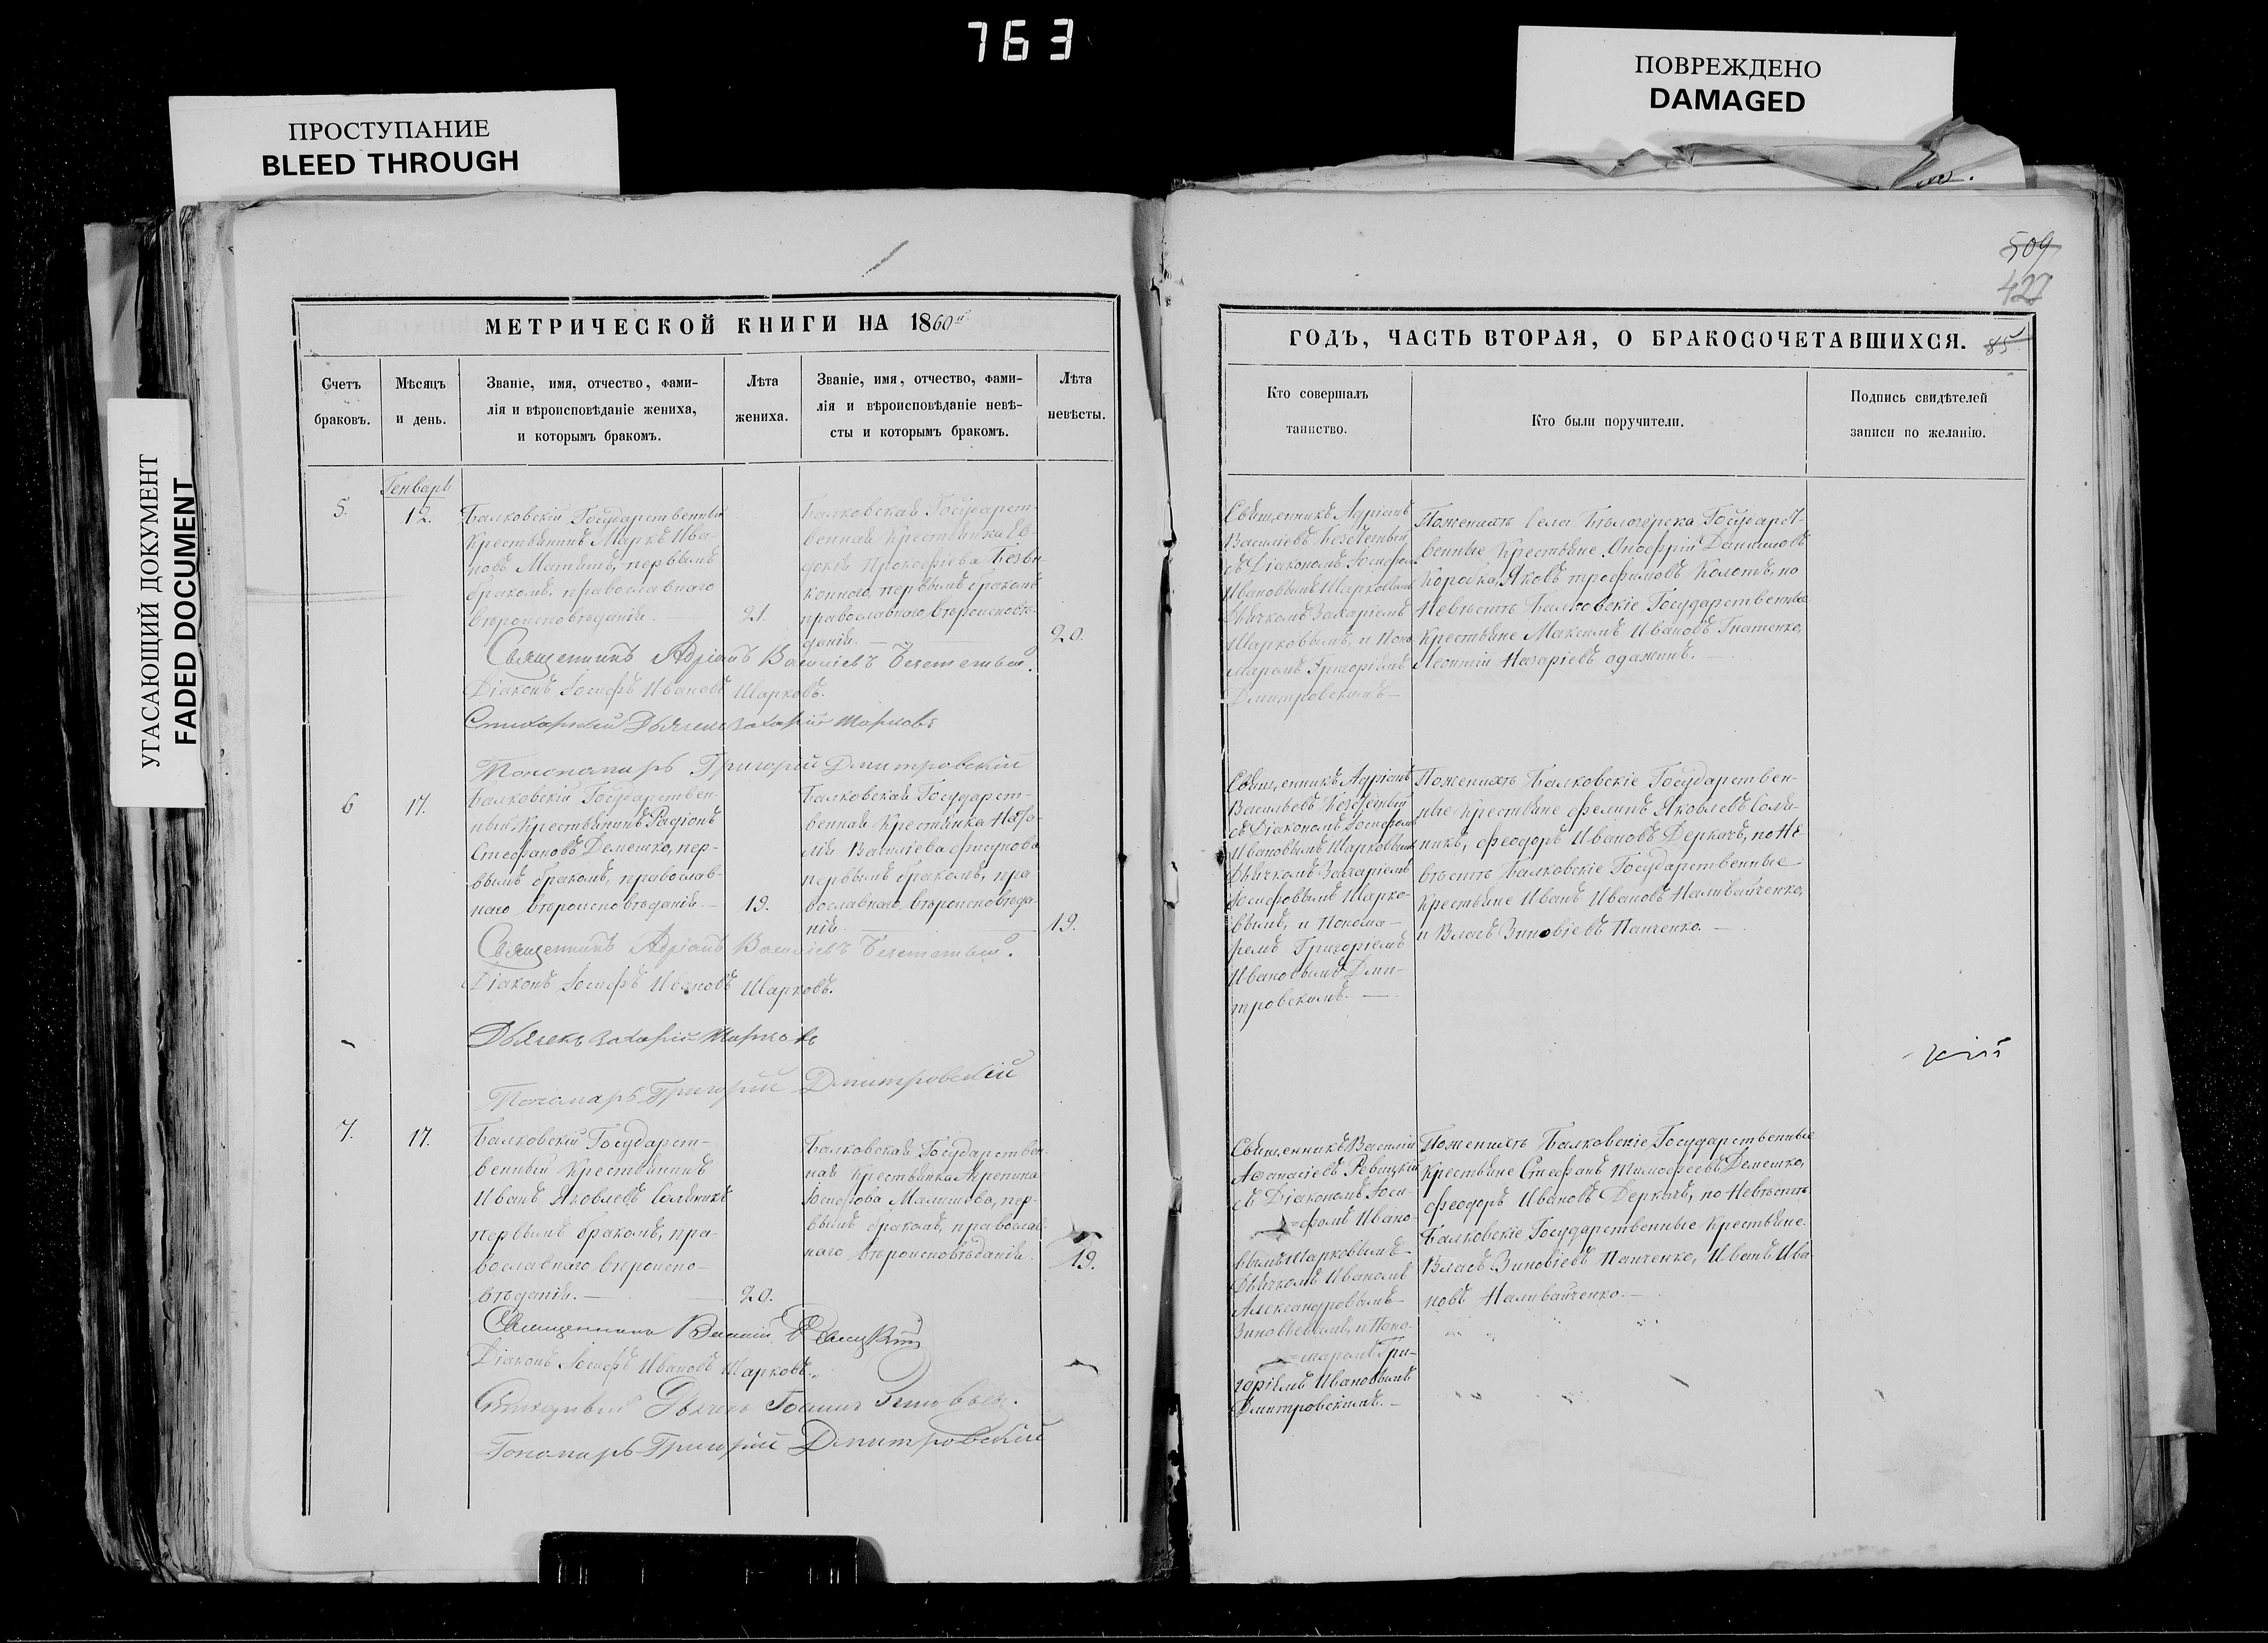 763
ПРОСТУПАНИЕ
BLEED THROUGH
ПОВРЕЖДЕНО
DAMAGED
УГАСАЮЩИЙ ДОКУМЕНТ
FADED DOCUMENT
509
427
МЕТРИЧЕСКОЙ КНИГИ НА 1860й
Счетъ
браковъ.
Мѣсяцъ
и день.
Званіе, имя, отчество, фами-
лія и вѣроисповѣданіе жениха,
и которымъ бракомъ.
Лѣта
жениха.
Званіе, имя, отчество, фами-
лія и вѣроисповѣданіе невѣ-
сты и которымъ бракомъ.
Лѣта
невѣсты.
Генварь
5.
12.
Балковскій Государственный
Крестьянинъ Маркъ Ива-
новъ первымъ
бракомъ, православнаго
вѣроисповѣданія. —
21.
Балковская Государст-
венная Крестьянка Ев-
докія Прокофіева
первымъ бракомъ
православнаго вѣроисповѣ-
данія. —
20.
Священникъ Адріанъ Васильевъ
Діаконъ Іосифъ Ивановъ Шарковъ.
Стихарный Дьячекъ Захарій Шарковъ
Пономарь Григорій Дмитровскій
6
17.
Балковскій Государствен-
ный Крестьянинъ Радіонъ
Стефановъ Демешко, пер-
вымъ бракомъ, православ-
наго вѣроисповѣданія. —
19.
Балковская Государст-
венная Крестьянка Ната-
лія Василіева
первымъ бракомъ, пра
вославнаго вѣроисповѣда-
нія.
19.
Священникъ Адріанъ Васильевъ
Діаконъ Іосифъ Ивановъ Шарковъ.
Дьячекъ Захарій Шарковъ
Пономарь Григорій Дмитровскій
7.
17.
Балковскій Государст-
венный Крестьянинъ
Иванъ Яковлевъ
первымъ бракомъ, пра-
вославнаго вѣроиспо-
вѣданія. —
20.
Балковская Государствен-
ная Крестьянка
Іосифова пер-
вымъ бракомъ, православ-
наго вѣроисповѣданія.
19.
Священникъ Василій
Діаконъ Іосифъ Ивановъ Шарковъ.
Стихарный Дьячекъ Іоаннъ
Пономарь Григорій Дмитровскій
ГОДЪ, ЧАСТЬ ВТОРАЯ, О БРАКОСОЧЕТАВШИХСЯ. 85
Кто совершалъ
таинство.
Кто были поручители.
Подпись свидѣтелей
записи по желанію.
Священникъ Адріанъ
Васильевъ
съ Діакономъ Іосифомъ
Ивановымъ Шарковымъ
Дьячкомъ Захаріемъ
Шарковымъ, и Поно
маремъ Григоріемъ
Дмитровскимъ —
По женихѣ Села Бѣлогорска Государст-
венные Крестьяне Онофрій Даниловъ
Коробка, Яковъ Трофимовъ Колотъ, по
Невѣстѣ Балковскіе Государственные
Крестьяне Максимъ Ивановъ Гнатенко,
Леонтій Назаріевъ
Священникъ Адріанъ
Васильевъ
съ Діакономъ Іосифомъ
Ивановымъ Шарковымъ
Дьячкомъ Захаріемъ
Іосифовымъ Шарко-
вымъ, и Понома-
ремъ Григоріемъ
Ивановымъ Дми-
тровскимъ. —
По женихѣ Балковскіе Государствен-
ные Крестьяне Филипъ Яковлевъ
Феодоръ Ивановъ Деркачъ, по Не-
вѣстѣ Балковскіе Государственные
Крестьяне Иванъ Ивановъ Наливайченко,
и Власъ Зиновіевъ Панченко. —
Священникъ Василій
Афанасіевъ Ревицкій
съ Діакономъ Іоси-
=фомъ Ивано-
вымъ Шарковымъ
Дьячкомъ Иваномъ
Александровымъ
и Поно-
=маремъ Гри-
горіемъ Ивановымъ
Дмитровскимъ. —
По женихѣ Балковскіе Государственные
Крестьяне Стефанъ Тимофеевъ Демешко,
Феодоръ Ивановъ Деркачъ, по Невѣстѣ
Балковскіе Государственные Крестьяне
Власъ Зиновіевъ Панченко, Иванъ Ива
новъ Наливайченко. —